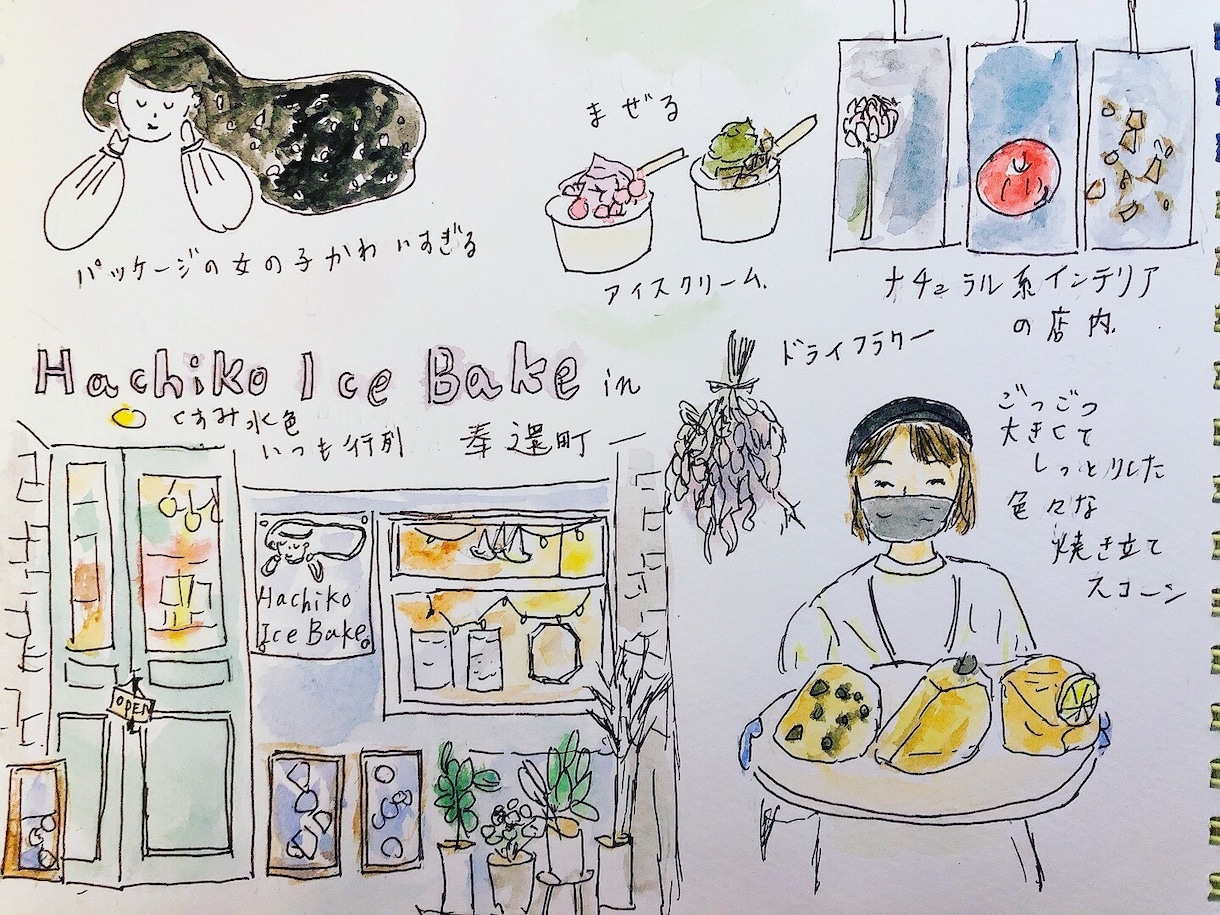 パッケージの女の子かわいすぎる
まぜる
アイスクリーム
ナチュラル系インテリア
の店内
Hachiko Ice Bake in
くすみ水色
いつも行列
奉還町
ドライフラワー
ごつごつ
大きくて
しっとりした
色々な
焼き立て
スコーン
Hachiko
Ice Bake
OPEN